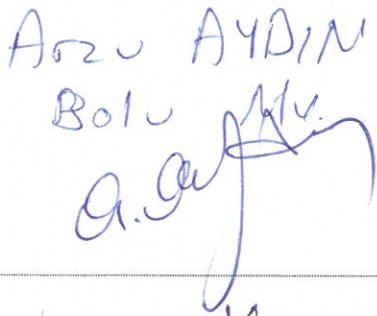 Arzu AYDIN
Bolu Mv.